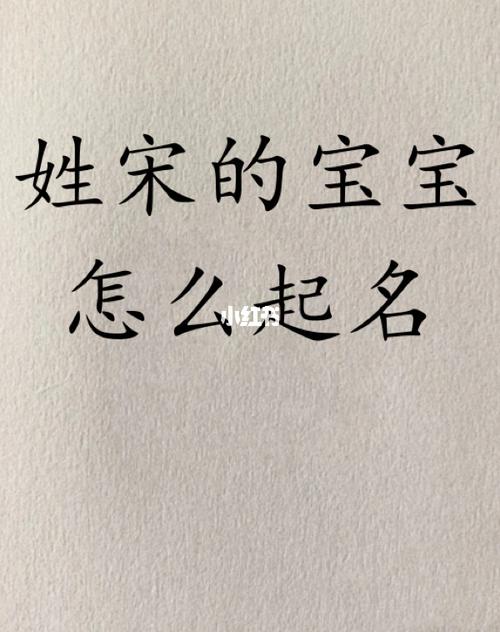 姓宋的宝宝
怎么起名
小红书